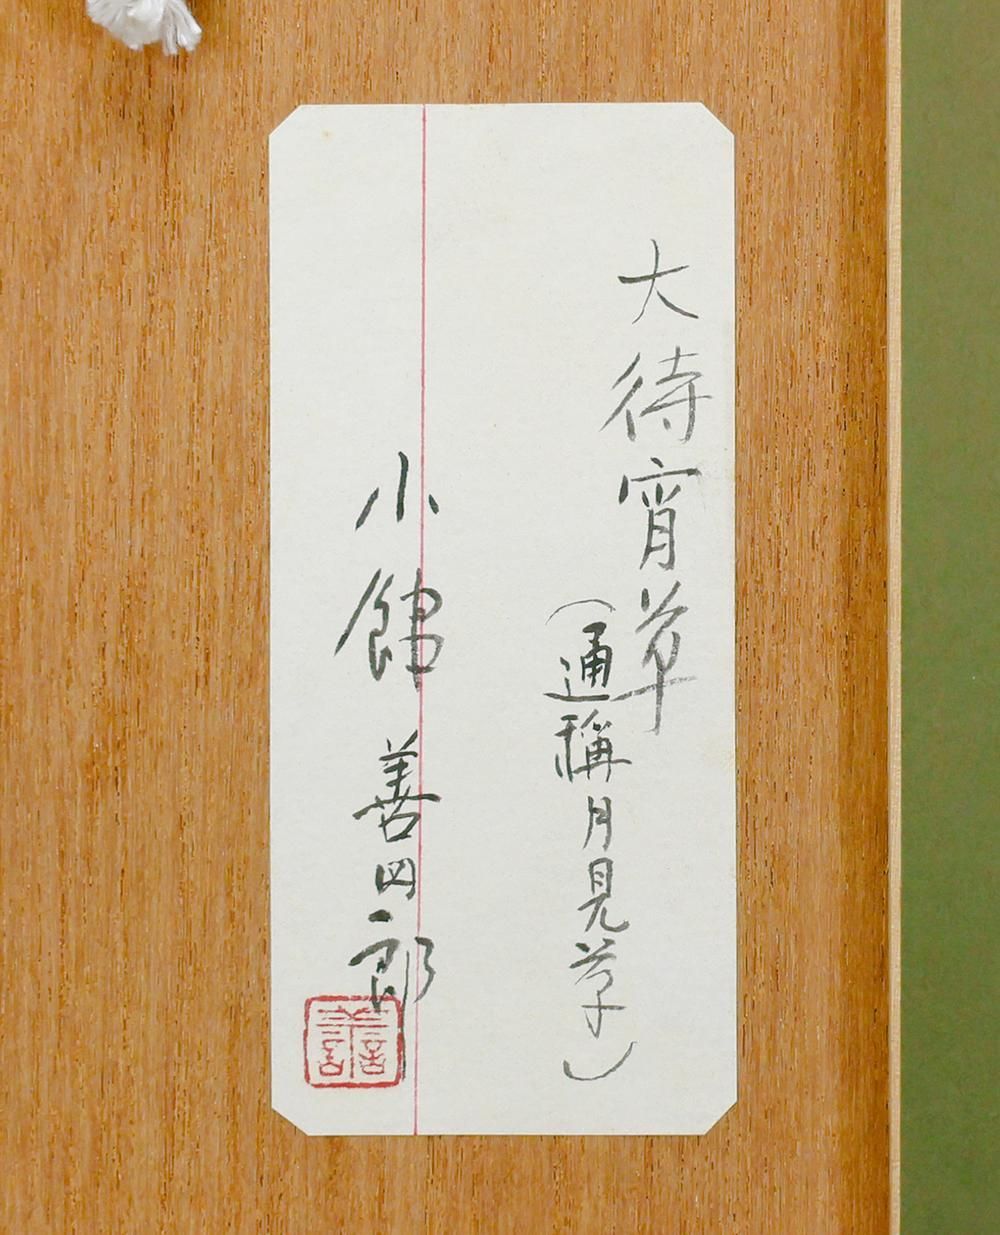 大待宵草
(通稱月見草)
小館善四郎
譱